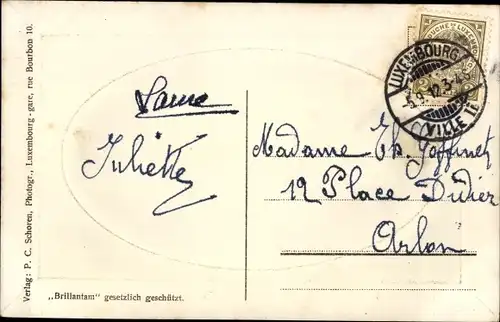 Verlag: P. C. Schoren, Photogr., Luxembourg-gare, rue Bourbon 10.
LUXEMBOURG
VILLE
Juliette
Madame Th. Goffinet
12 Place Didier
Arlon
„Brillantam" gesetzlich geschützt.